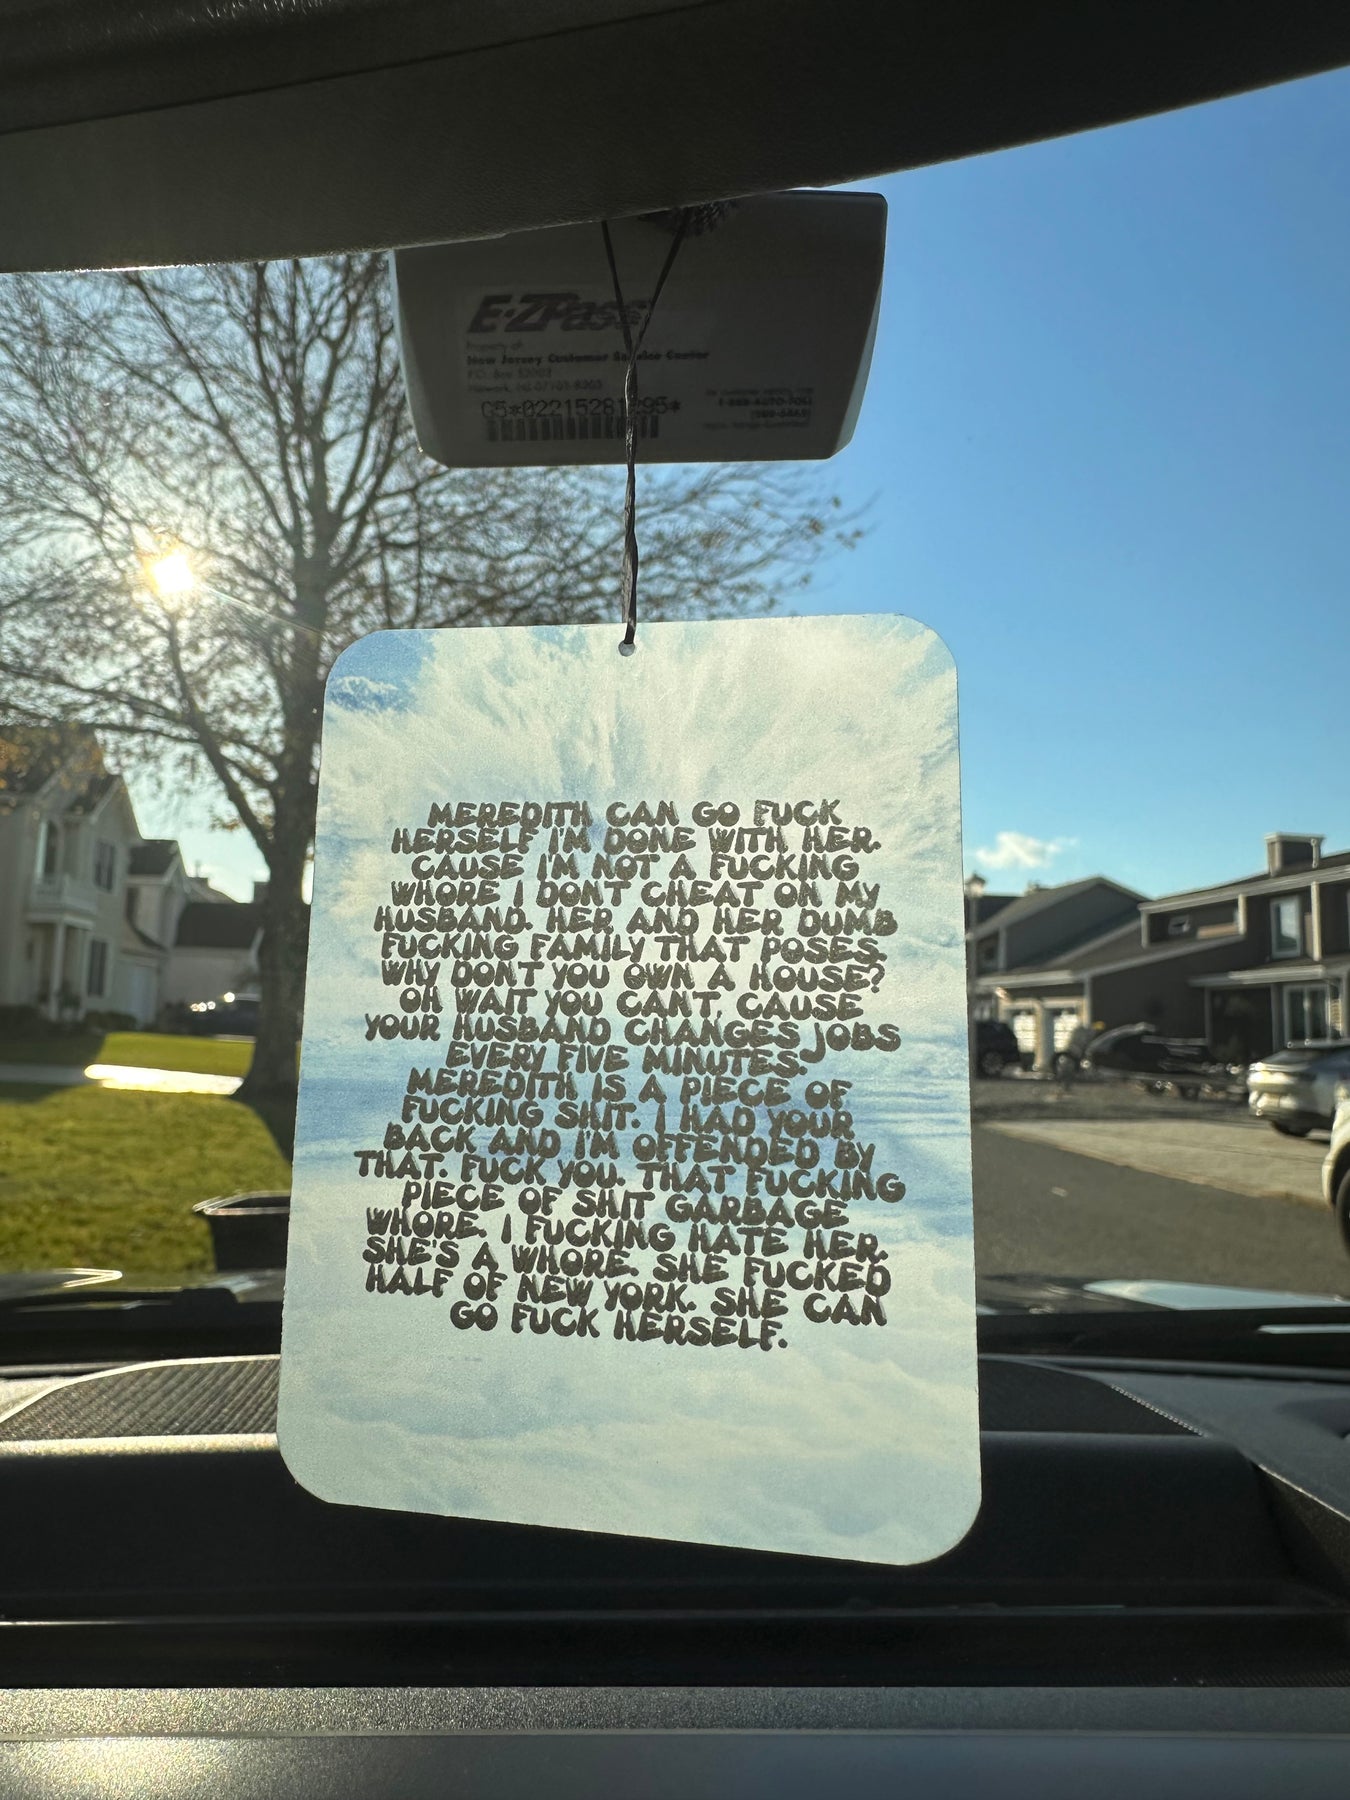 E-ZPass
Property of:
New Jersey Customer Service Center
1-888-AUTO-TOLL
MEREDITH CAN GO FUCK
HERSELF I'M DONE WITH HER.
CAUSE I'M NOT A FUCKING
WHORE I DON'T CHEAT ON MY
HUSBAND. HER AND HER DUMB
FUCKING FAMILY THAT POSES.
WHY DON'T YOU OWN A HOUSE?
OH WAIT YOU CAN'T, CAUSE
YOUR HUSBAND CHANGES JOBS
EVERY FIVE MINUTES.
MEREDITH IS A PIECE OF
FUCKING SHIT. I HAD YOUR
BACK AND I'M OFFENDED BY
THAT. FUCK YOU. THAT FUCKING
PIECE OF SHIT GARBAGE
WHORE. I FUCKING HATE HER.
SHE'S A WHORE. SHE FUCKED
HALF OF NEW YORK. SHE CAN
GO FUCK HERSELF.